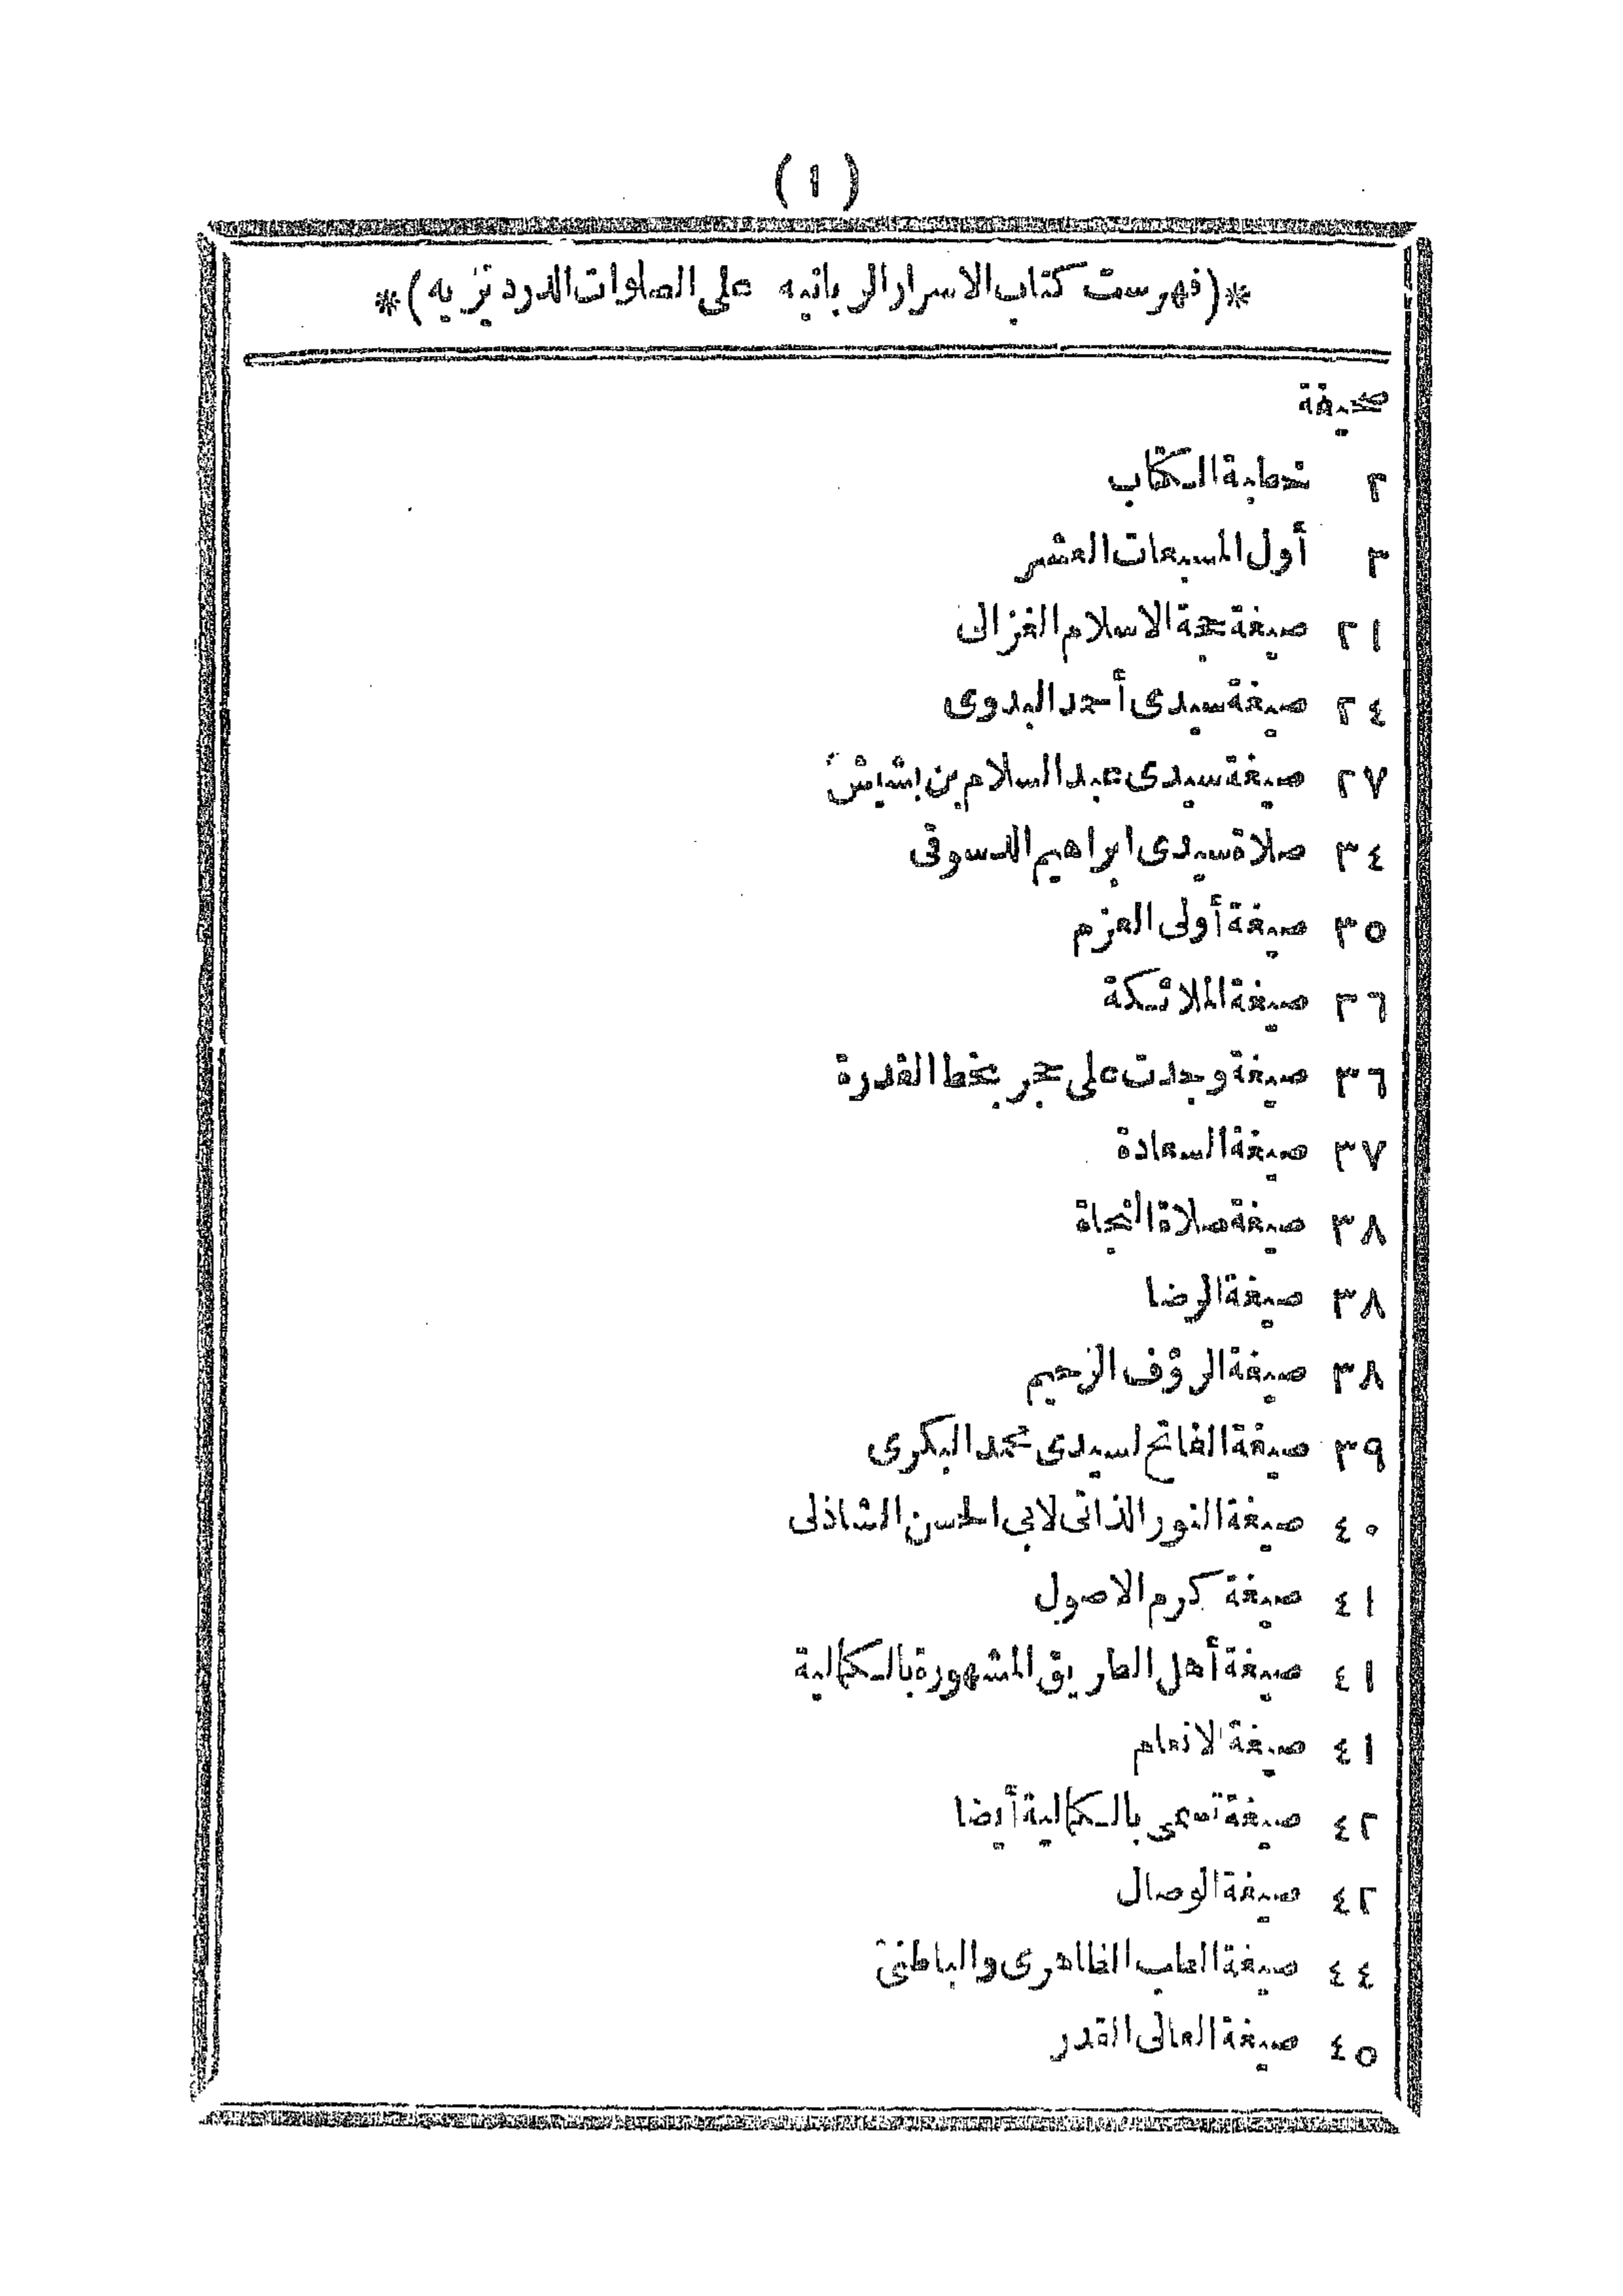 (١)
*(فهرست كتاب الاسرار الربانيه على الصلوات الدرديريه)*
صحيفة
٢ خطبة الكتاب
٣ أول المسبعات العشر
٢١ صيغة حجة الاسلام الغزالى
٢٤ صيغة سيدى أحمد البدوى
٢٧ صيغة سيدى عبد السلام بن بشيش
٣٤ صلاة سيدى ابراهيم الدسوقى
٣٥ صيغة أولى العزم
٣٦ صيغة الملائكة
٣٦ صيغة وجدت على حجر بخط القدرة
٣٧ صيغة السعادة
٣٨ صيغة صلاة النجاة
٣٨ صيغة الرضا
٣٨ صيغة الرؤف الرحيم
٣٩ صيغة الفاتح لسيدى محمد البكرى
٤٠ صيغة النور الذاتى لابى الحسن الشاذلى
٤١ صيغة كرم الاصول
٤١ صيغة أهل الطريق المشهورة بالكمالية
٤١ صيغة الانعام
٤٢ صيغة تسمى بالكمالية أيضا
٤٢ صيغة الوصال
٤٤ صيغة الطب الظاهرى والباطنى
٤٥ صيغة العالى القدر